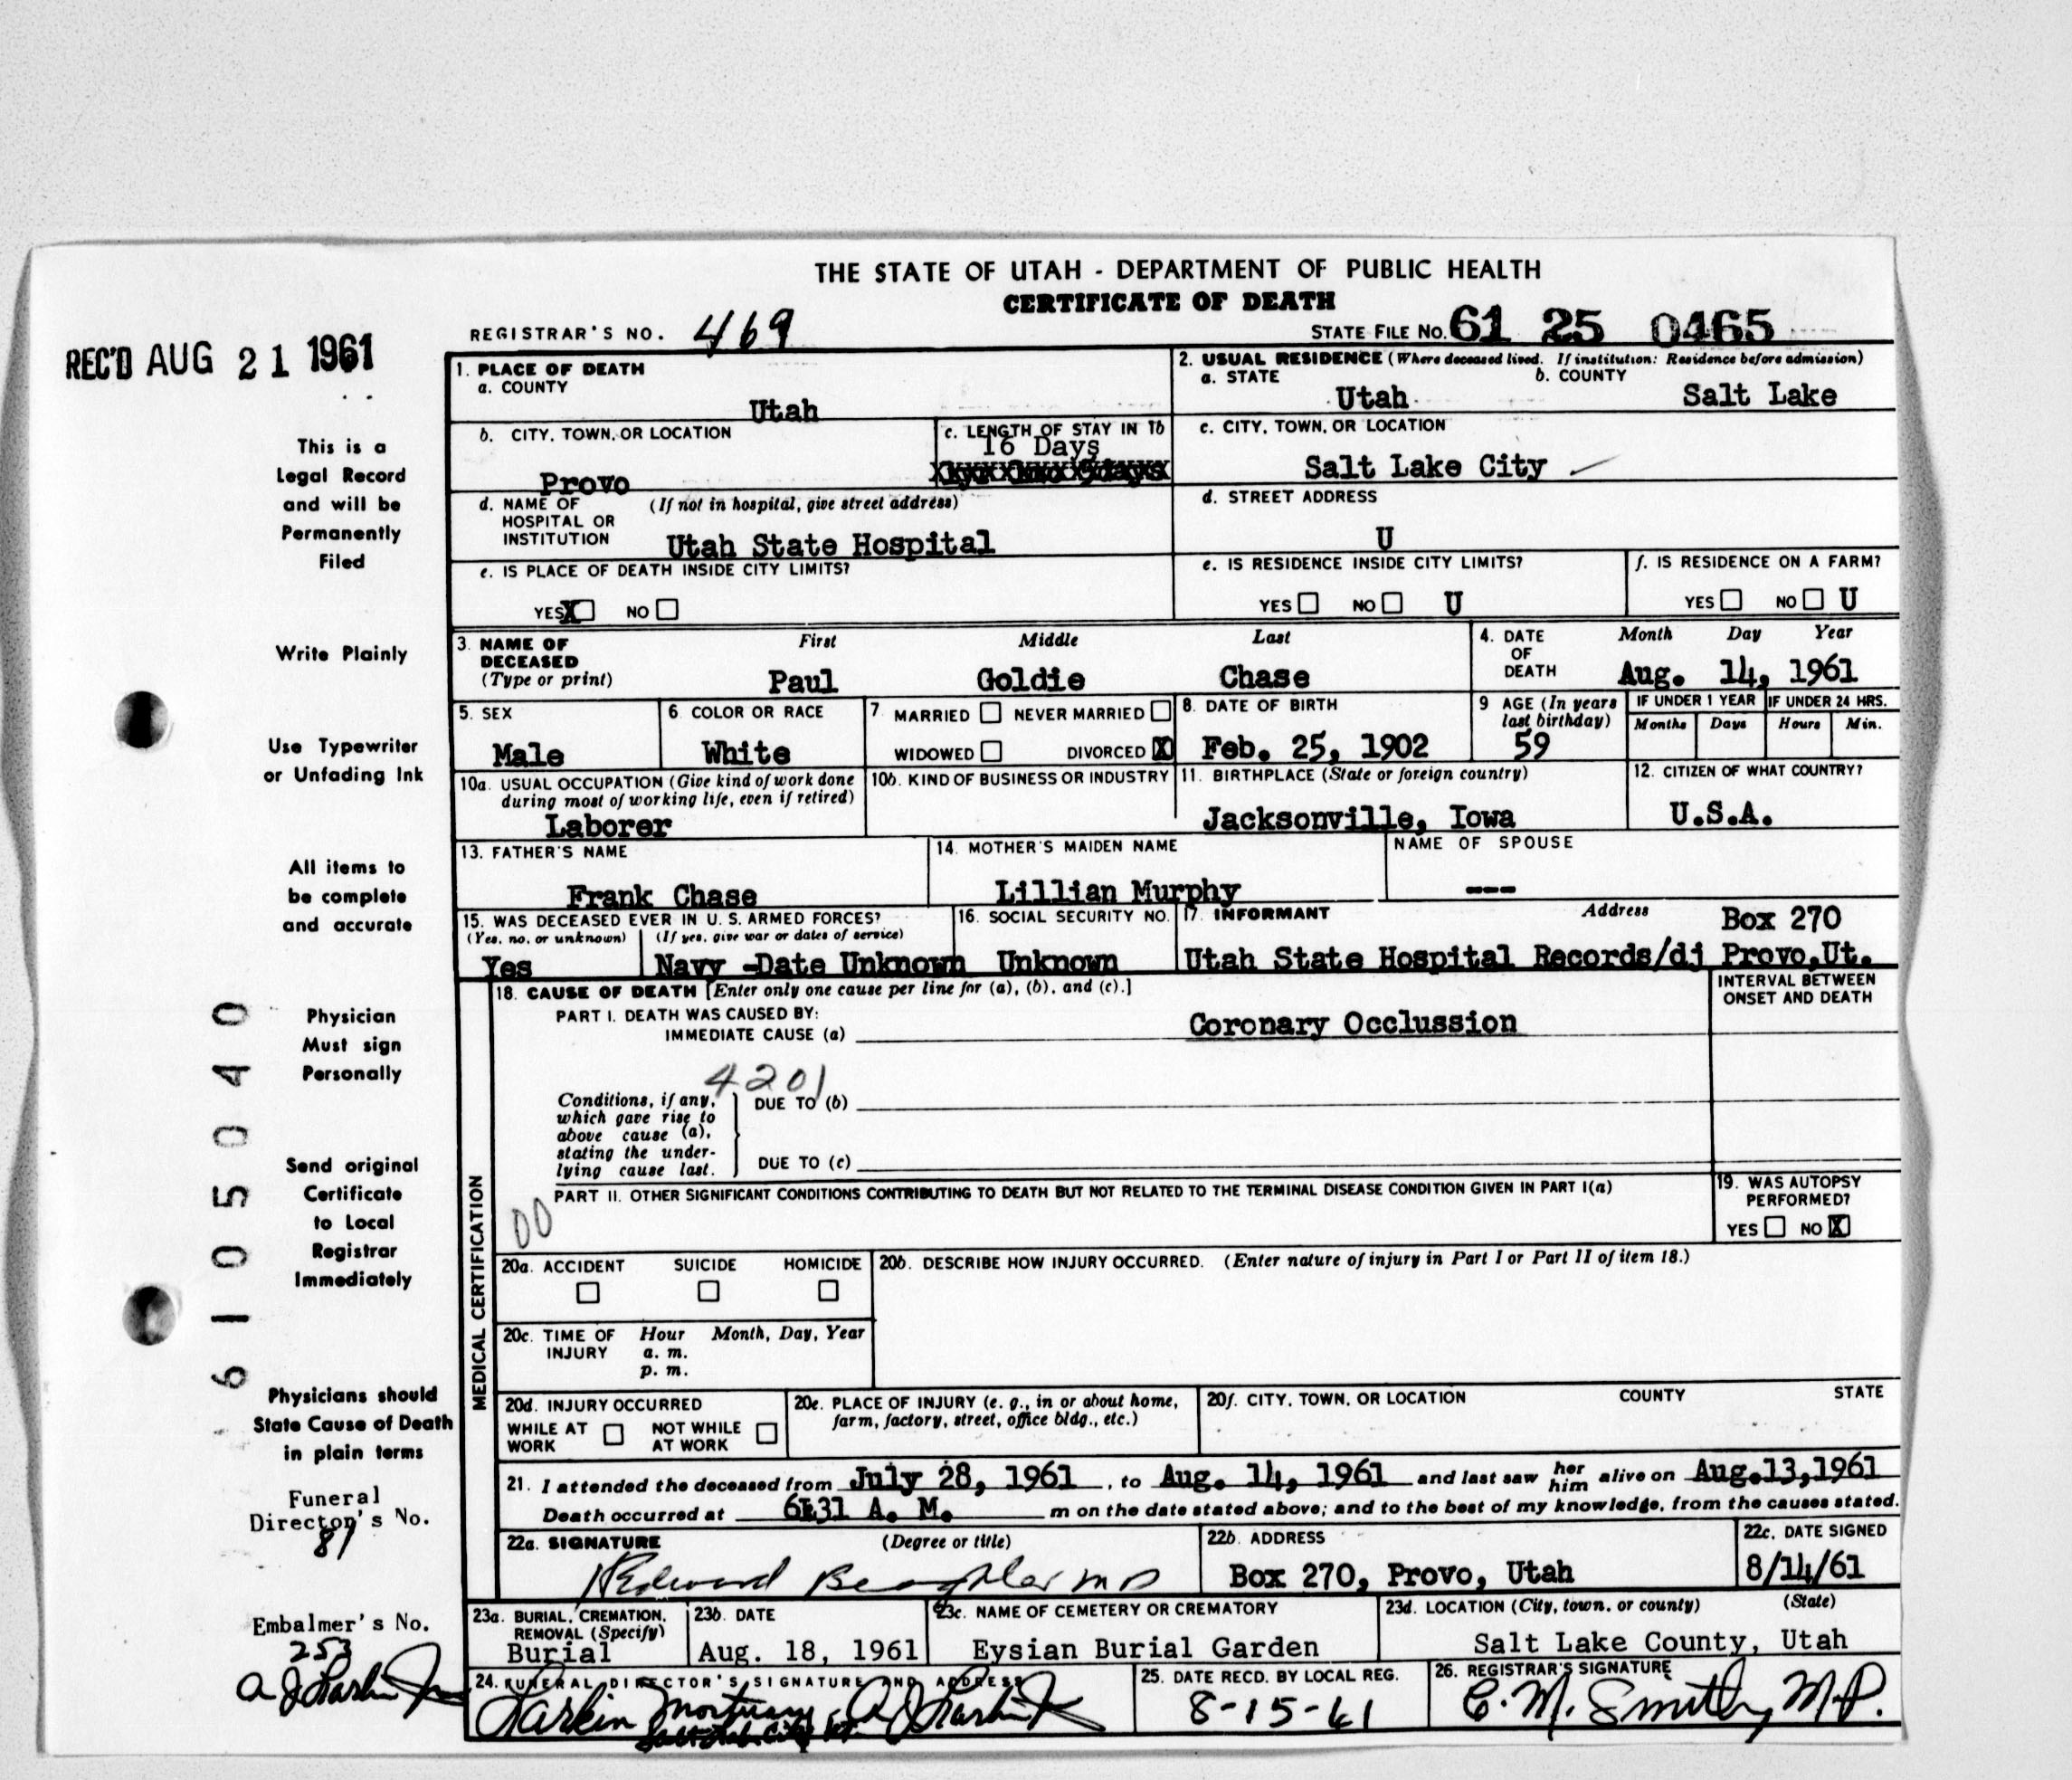 THE STATE OF UTAH - DEPARTMENT OF PUBLIC HEALTH
CERTIFICATE OF DEATH
REGISTRAR'S NO. 469
STATE FILE NO. 61 25 0465
REC'D AUG 21 1961
This is a
Legal Record
and will be
Permanently
Filed
Write Plainly
Use Typewriter
or Unfading Ink
All items to
be complete
and accurate
Physician
Must sign
Personally
Send original
Certificate
to Local
Registrar
Immediately
Physicians should
State Cause of Death
in plain terms
Funeral
Director's No.
81
Embalmer's No.
253
A J Larkin Jr
61050540
1. PLACE OF DEATH
a. COUNTY
Utah
b. CITY, TOWN, OR LOCATION
Provo
c. LENGTH OF STAY IN 1b
16 Days
d. NAME OF HOSPITAL OR INSTITUTION (If not in hospital, give street address)
Utah State Hospital
e. IS PLACE OF DEATH INSIDE CITY LIMITS?
YES X NO
2. USUAL RESIDENCE (Where deceased lived. If institution: Residence before admission)
a. STATE
Utah
b. COUNTY
Salt Lake
c. CITY, TOWN, OR LOCATION
Salt Lake City
d. STREET ADDRESS
U
e. IS RESIDENCE INSIDE CITY LIMITS?
YES NO U
f. IS RESIDENCE ON A FARM?
YES NO U
3. NAME OF DECEASED (Type or print)
First Middle Last
Paul Goldie Chase
4. DATE OF DEATH
Month Day Year
Aug. 14, 1961
5. SEX
Male
6. COLOR OR RACE
White
7. MARRIED NEVER MARRIED
WIDOWED DIVORCED X
8. DATE OF BIRTH
Feb. 25, 1902
9 AGE (In years last birthday)
59
IF UNDER 1 YEAR IF UNDER 24 HRS.
Months Days Hours Min.
10a. USUAL OCCUPATION (Give kind of work done during most of working life, even if retired)
Laborer
10b. KIND OF BUSINESS OR INDUSTRY
11. BIRTHPLACE (State or foreign country)
Jacksonville, Iowa
12. CITIZEN OF WHAT COUNTRY?
U.S.A.
13. FATHER'S NAME
Frank Chase
14. MOTHER'S MAIDEN NAME
Lillian Murphy
NAME OF SPOUSE
---
15. WAS DECEASED EVER IN U. S. ARMED FORCES?
(Yes, no, or unknown) (If yes, give war or dates of service)
Yes Navy -Date Unknown
16. SOCIAL SECURITY NO.
Unknown
17. INFORMANT Address
Box 270
Utah State Hospital Records/dj Provo,Ut.
MEDICAL CERTIFICATION
18. CAUSE OF DEATH [Enter only one cause per line for (a), (b), and (c).]
INTERVAL BETWEEN ONSET AND DEATH
PART I. DEATH WAS CAUSED BY:
IMMEDIATE CAUSE (a) Coronary Occlussion
4201
Conditions, if any, which gave rise to above cause (a), stating the underlying cause last.
DUE TO (b)
DUE TO (c)
PART II. OTHER SIGNIFICANT CONDITIONS CONTRIBUTING TO DEATH BUT NOT RELATED TO THE TERMINAL DISEASE CONDITION GIVEN IN PART I(a)
00
19. WAS AUTOPSY PERFORMED?
YES NO X
20a. ACCIDENT SUICIDE HOMICIDE
20b. DESCRIBE HOW INJURY OCCURRED. (Enter nature of injury in Part I or Part II of item 18.)
20c. TIME OF INJURY Hour Month, Day, Year
a. m.
p. m.
20d. INJURY OCCURRED
WHILE AT WORK NOT WHILE AT WORK
20e. PLACE OF INJURY (e. g., in or about home, farm, factory, street, office bldg., etc.)
20f. CITY, TOWN, OR LOCATION COUNTY STATE
21. I attended the deceased from July 28, 1961, to Aug. 14, 1961 and last saw her him alive on Aug.13,1961
Death occurred at 6:31 A. M. m on the date stated above; and to the best of my knowledge, from the causes stated.
22a. SIGNATURE (Degree or title)
22b. ADDRESS
Box 270, Provo, Utah
22c. DATE SIGNED
8/14/61
23a. BURIAL, CREMATION, REMOVAL (Specify)
Burial
23b. DATE
Aug. 18, 1961
23c. NAME OF CEMETERY OR CREMATORY
Eysian Burial Garden
23d. LOCATION (City, town, or county) (State)
Salt Lake County, Utah
24. FUNERAL DIRECTOR'S SIGNATURE AND ADDRESS
Larkin Mortuary A J Larkin Jr
Salt Lake City Ut.
25. DATE RECD. BY LOCAL REG.
8-15-61
26. REGISTRAR'S SIGNATURE
C. M. Smith, M.D.